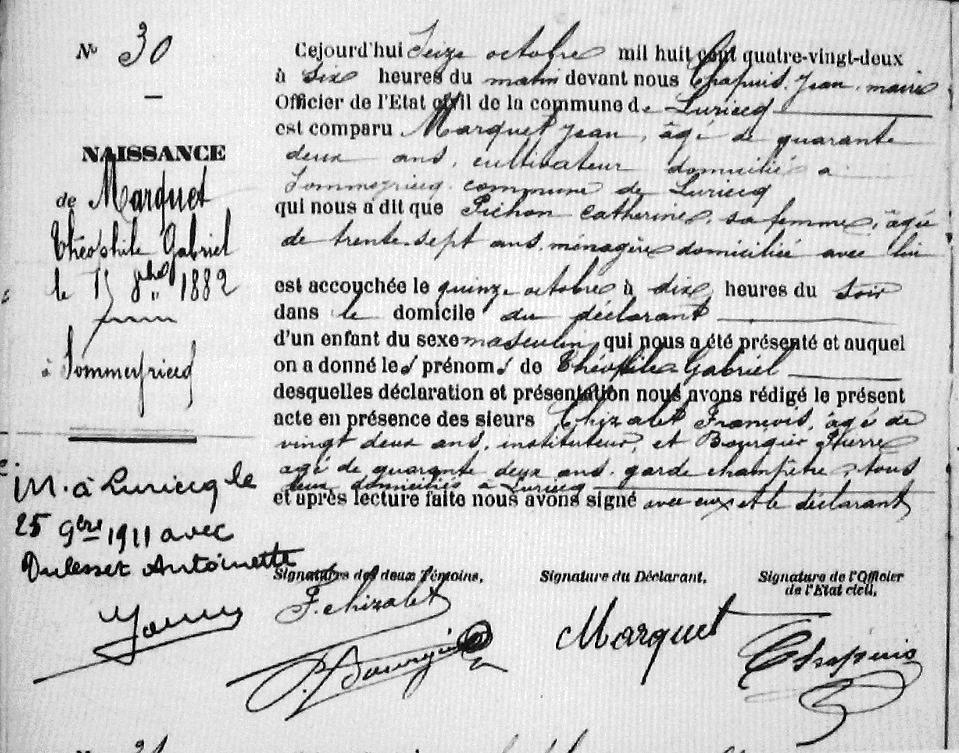 N° 30
NAISSANCE
de Marquet
Théophile Gabriel
le 15 8bre 1882
à Sommeyriecq
M. à Luriecq le
25 9bre 1911 avec
Antoinette
Cejourd'hui Seize octobre mil huit cent quatre-vingt-deux
à Six heures du matin devant nous Chapuis Jean, maire
Officier de l'Etat civil de la commune de Luriecq
est comparu Marquet Jean, âgé de quarante
deux ans, cultivateur domicilié à
Sommeyriecq commune de Luriecq
qui nous a dit que Pichon Catherine, sa femme, âgée
de trente-sept ans, ménagère domiciliée avec lui
est accouchée le quinze octobre à dix heures du Soir
dans le domicile du déclarant
d'un enfant du sexe masculin, qui nous a été présenté et auquel
on a donné les prénoms de Théophile Gabriel
desquelles déclaration et présentation nous avons rédigé le présent
acte en présence des sieurs Chizalet François, âgé de
vingt deux ans, instituteur, et Bourgier Pierre
agé de quarante deux ans, garde champêtre, tous
deux domiciliés à Luriecq
et après lecture faite nous avons signé avec eux et le déclarant
Signatures des deux Témoins,
Signature du Déclarant,
Signature de l'Officier
de l'Etat civil,
F. Chizalet
P. Bourgier
Marquet
Chapuis
N° 31